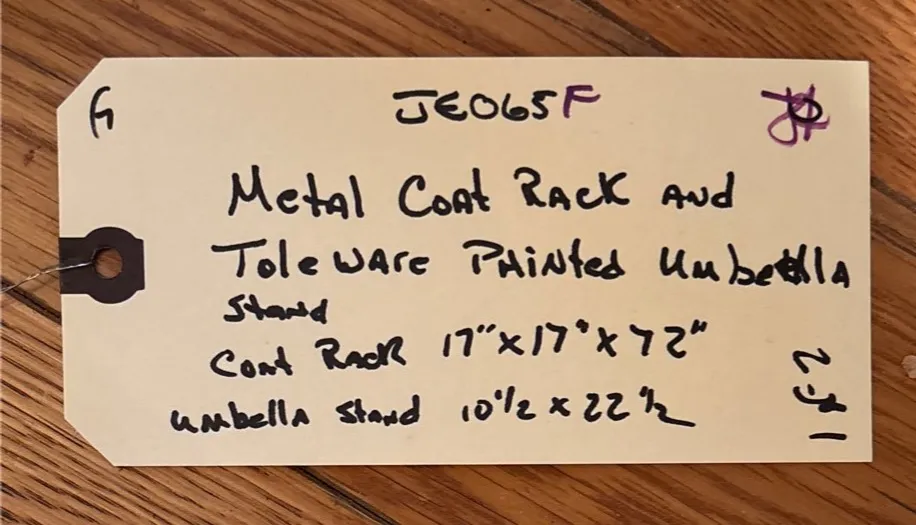 G JE065F
Metal Coat Rack and
Toleware Painted Umbella
Stand
Coat Rack 17" x 17" x 72"
umbella stand 10 1/2 x 22 1/2